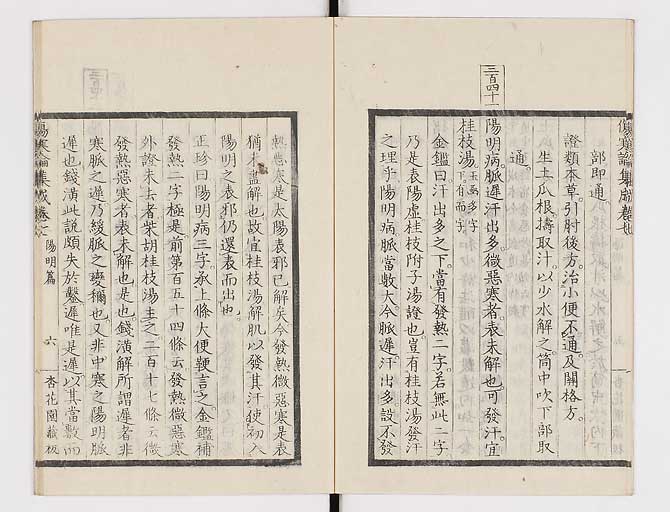 部即通。
證類本草。引肘後方。治小便不通。及關格方。
生土瓜根。擣取汁。以少水解之。筒中吹下部取
通。
三百四十一
陽明病脈遲汗出多微惡寒者表未解也可發汗宜
桂枝湯
金鑑曰汗出多之下。當有發熱二字。若無此二字
乃是表陽虛桂枝附子湯證也。豈有桂枝湯發汗
之理乎陽明病脈當數大今脈遲。汗出多。設不發
熱惡寒是太陽表邪已解矣今發熱微惡寒是表
猶未盡解也故宜桂枝湯解肌以發其汗使初入
陽明之表邪仍還表而出也
正珍曰陽明病三字。承上條大便鞕言之金鑑補
發熱二字極是。前第百五十四條云發熱微惡寒
外證未去者柴胡桂枝湯主之二百十七條云微
發熱惡寒者表未解也是也錢潢解所謂遲者非
寒脈之遲乃緩脈之變稱也。又非中寒之陽明脈
遲也錢潢此說頗失於鑿遲唯是遲以其當數而
傷寒論集成卷七
陽明篇
六
杏花園藏板